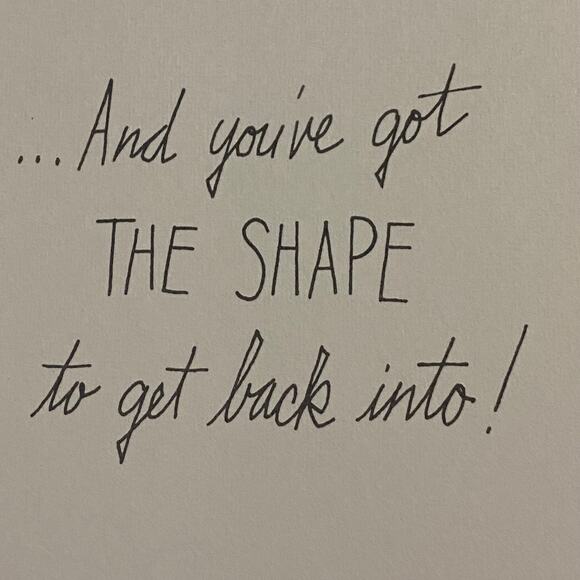 ...And you've got
THE SHAPE
to get back into!